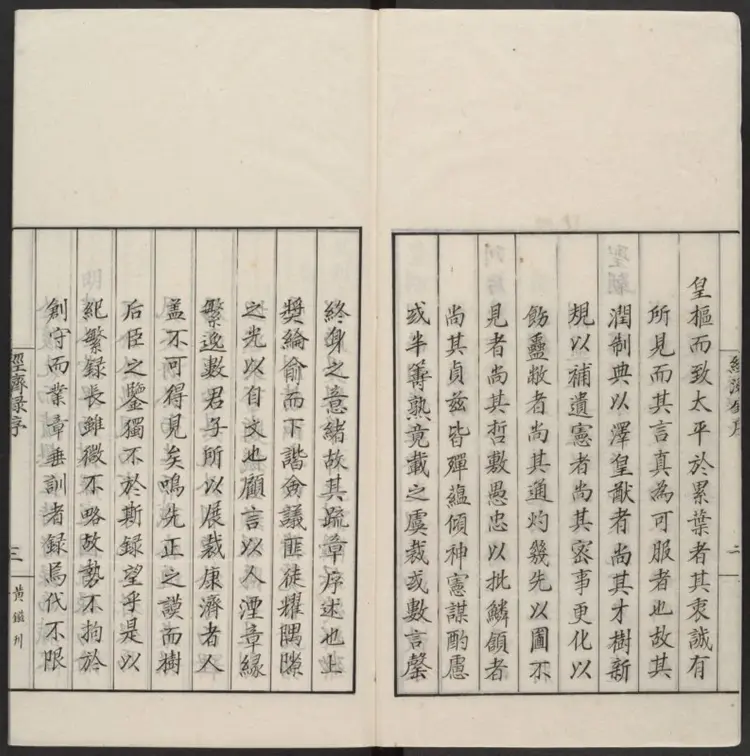 皇樞而致太平於累葉者其衷誠有
所見而其言真為可服者也故其
潤制典以澤皇猷者尚其才樹新
規以補遺憲者尚其密事更化以
飭蠱敝者尚其通灼幾先以圖不
見者尚其哲敷愚忠以批鱗頟者
尚其貞茲皆殫蘊傾神憲謀酌慮
或半籌熟竟載之虞裁或數言罄
終身之意緒故其疏章序述也上
獎綸俞而下諧僉議匪徒耀隅隙
之光以自文也顧言以人湮章緣
繁逸數君子所以展裁康濟者人
盖不可得見矣鳴先正之謨而樹
后臣之鑒獨不於斯録望乎是以
紀繁録長雖微不略故勢不拘於
創守而業章垂訓者録焉代不限
經濟録序
三
黄鎰刊
二